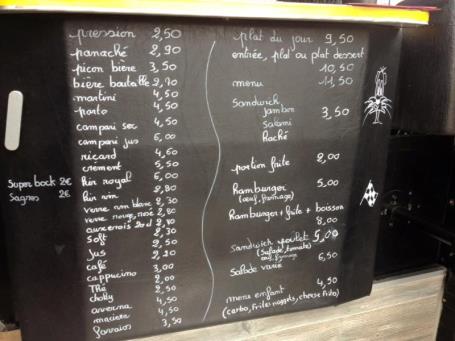 pression 2,50
panaché 2,90
picon bière 3,50
bière bouteille 2,90
martini 4,50
porto 4,50
campari sec 4,50
campari jus 6,00
ricard 4,60
crément 5,50
Kir royal 6,00
Kir vin
verre vin blanc
verre rouge, rosé 2,80
auxerrois
Soft
Jus 2,20
café
cappucino
Thé
cholly
averna 4,50
maciera 4,50
Ferraios 3,50
Super bock 2€
Sagres 2€
plat du jour 9,50
entrée, plat ou plat dessert
10,50
menu 11,50
Sandwich
jambon 3,50
salami
Haché
portion frite 2,00
Hamburger 5,00
(œuf, fromage)
Hamburger + frite + boisson
8,00
sandwich poulet 5,00
(Salade, tomate)
œuf, fromage
Salade varié 6,50
menu enfant 4,50
(cordo, Frites nuggets, cheese frito)